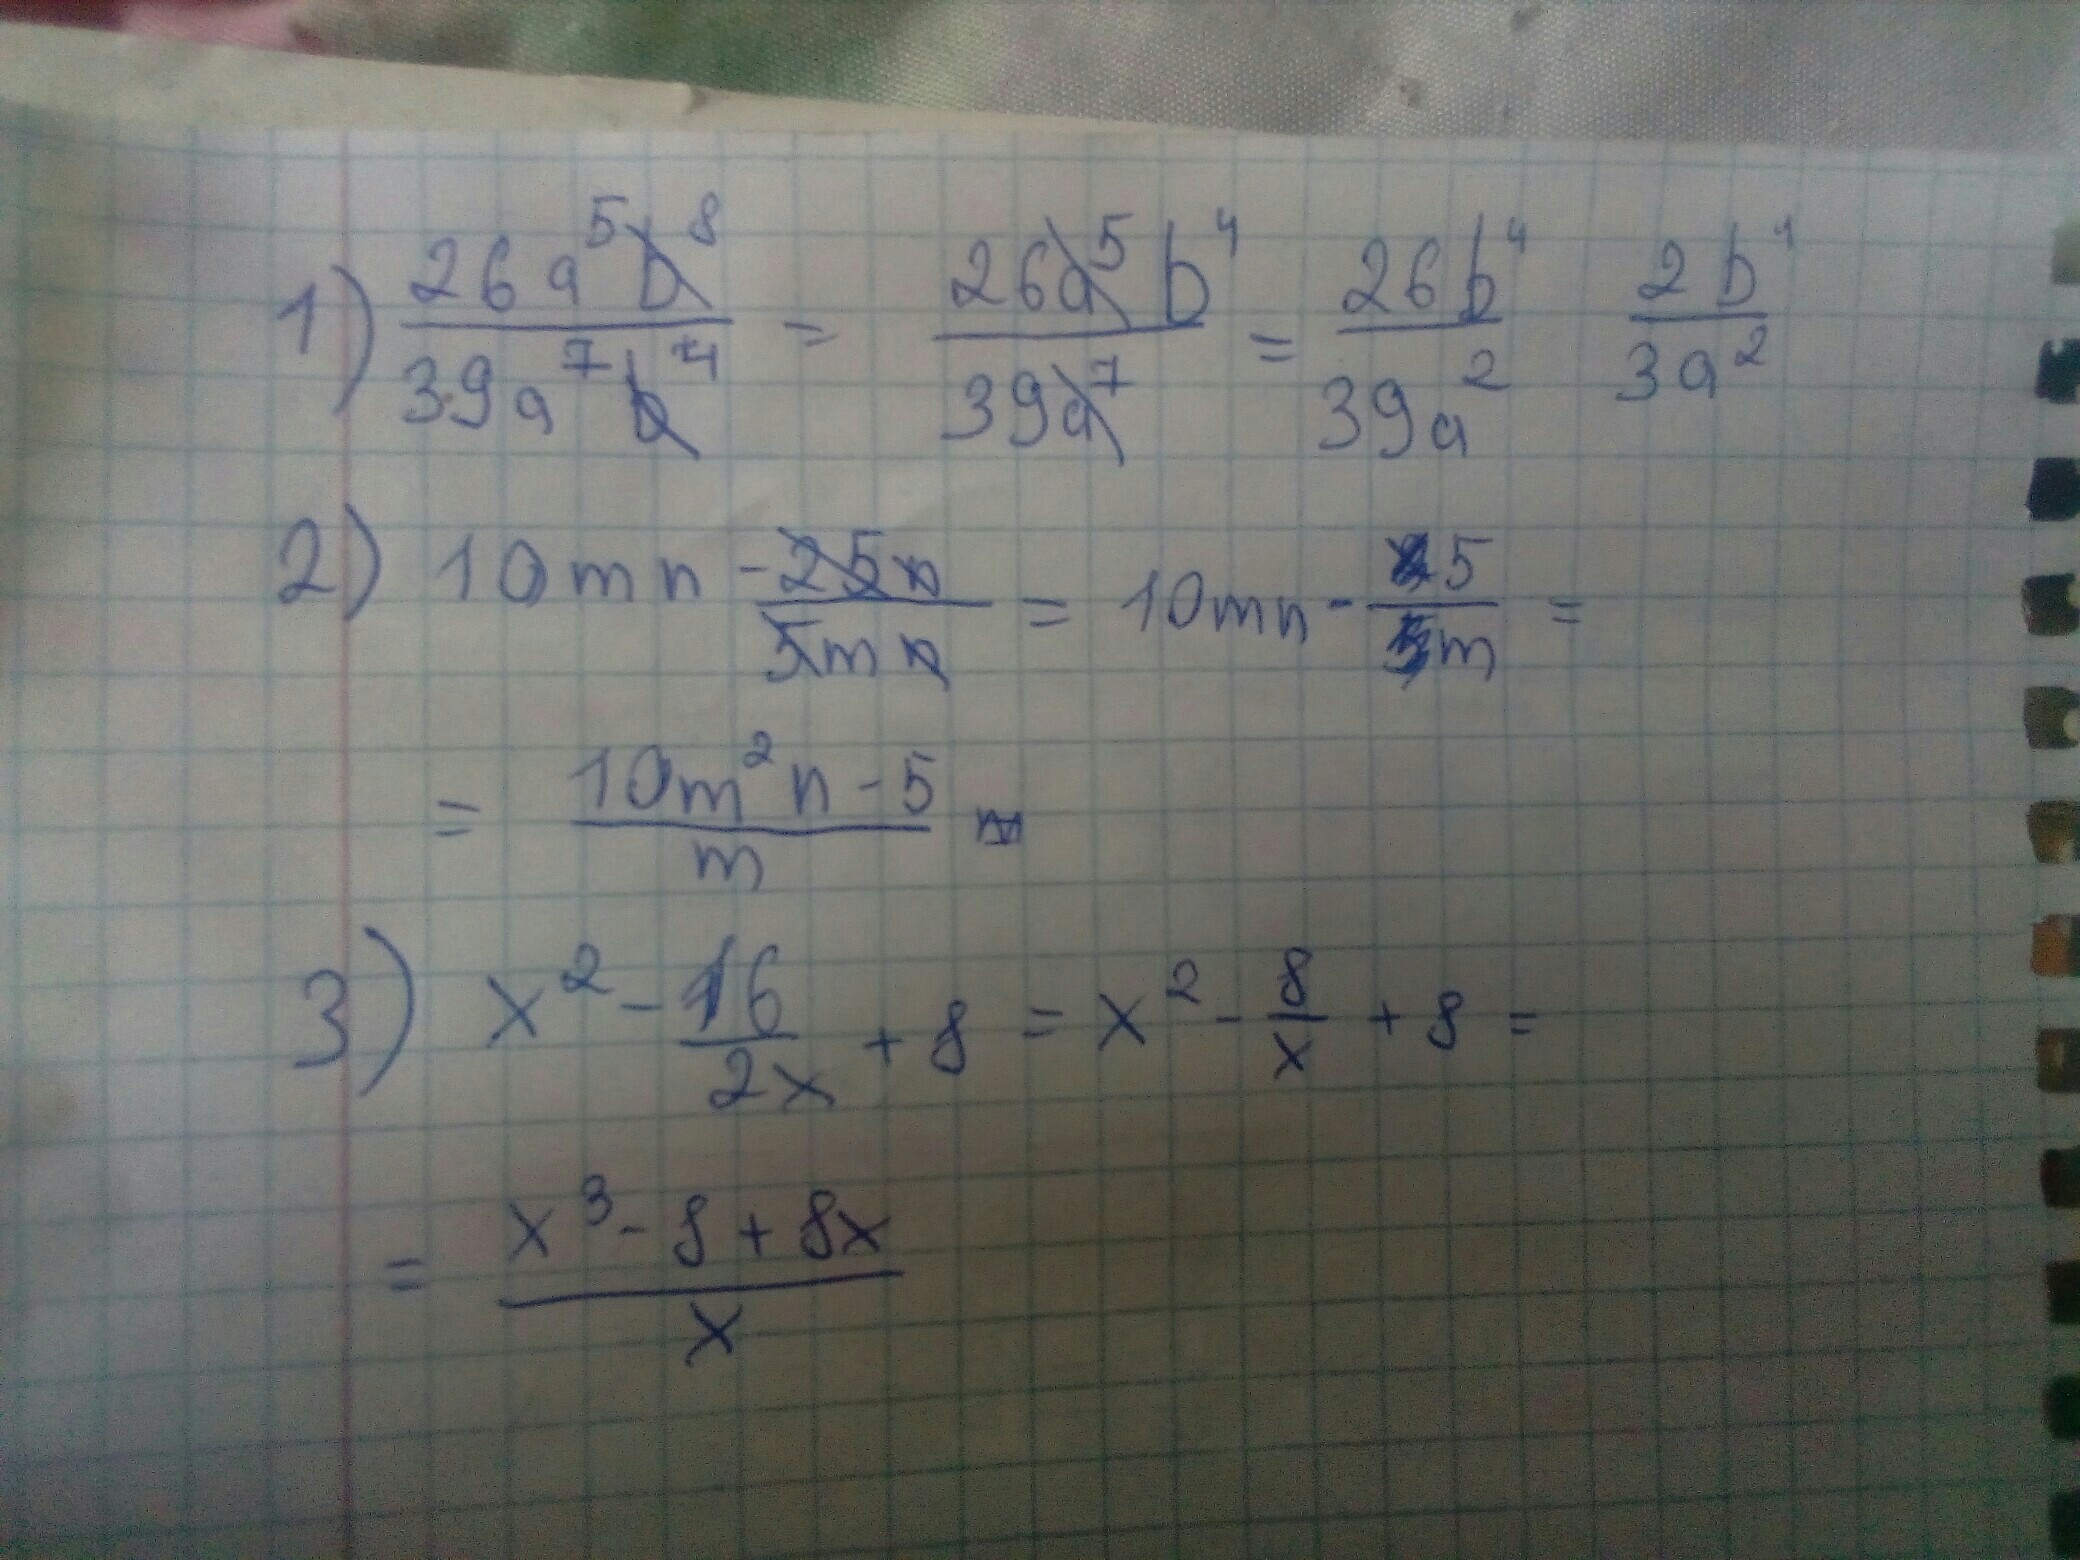 1) 26a⁵b⁸/39a⁷b⁴ = 26a⁵b⁴/39a⁷ = 26b⁴/39a² 2b⁴/3a²
2) 10mn - 25n/5mn = 10mn - 5/m =
= 10m²n - 5/m
3) x² - 16/2x + 8 = x² - 8/x + 8 =
= x³ - 8 + 8x/x